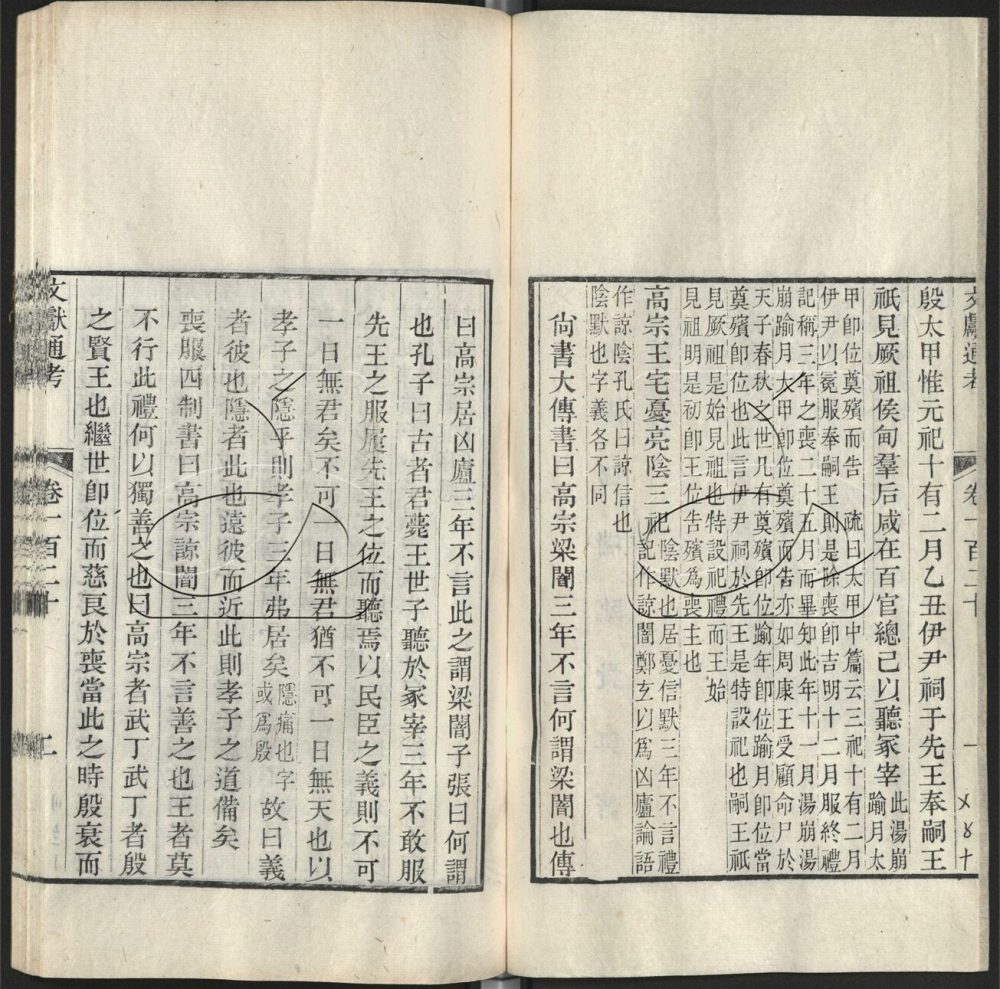 文獻通考 卷一百二十
殷太甲惟元祀十有二月乙丑伊尹祠于先王奉嗣王
祇見厥祖侯甸羣后咸在百官總己以聽冢宰此湯崩
踰月太
甲卽位奠殯而告 疏曰太甲中篇云三祀十有二月
伊尹以冕服奉嗣王則是除喪卽吉明十二月服終禮
記稱三年之喪二十五月而畢知此年十一月湯崩湯
崩踰月太甲卽位奠殯而告亦如周康王受顧命尸於
天子春秋之世凡有奠殯卽位踰年卽位踰月卽位當
奠殯卽位也此言伊尹祠於先王是特設祀也嗣王祇
見厥祖是始見祖也特設祀禮而王始
見祖明是初卽王位告殯爲喪主也
高宗王宅憂亮陰三祀陰默也居憂信默三年不言禮
記作諒闇鄭玄以爲凶廬論語
作諒陰孔氏曰諒信也
陰默也字義各不同
尙書大傳書曰高宗梁闇三年不言何謂梁闇也傳
曰高宗居凶廬三年不言此之謂梁闇子張曰何謂
也孔子曰古者君薨王世子聽於冢宰三年不敢服
先王之服履先王之位而聽焉以民臣之義則不可
一日無君矣不可一日無君猶不可一日無天也以
孝子之隱乎則孝子三年弗居矣隱痛也字
或爲殷故曰義
者彼也隱者此也遠彼而近此則孝子之道備矣
喪服四制書曰高宗諒闇三年不言善之也王者莫
不行此禮何以獨善之也曰高宗者武丁武丁者殷
之賢王也繼世卽位而慈良於喪當此之時殷衰而
文獻通考 卷一百二十